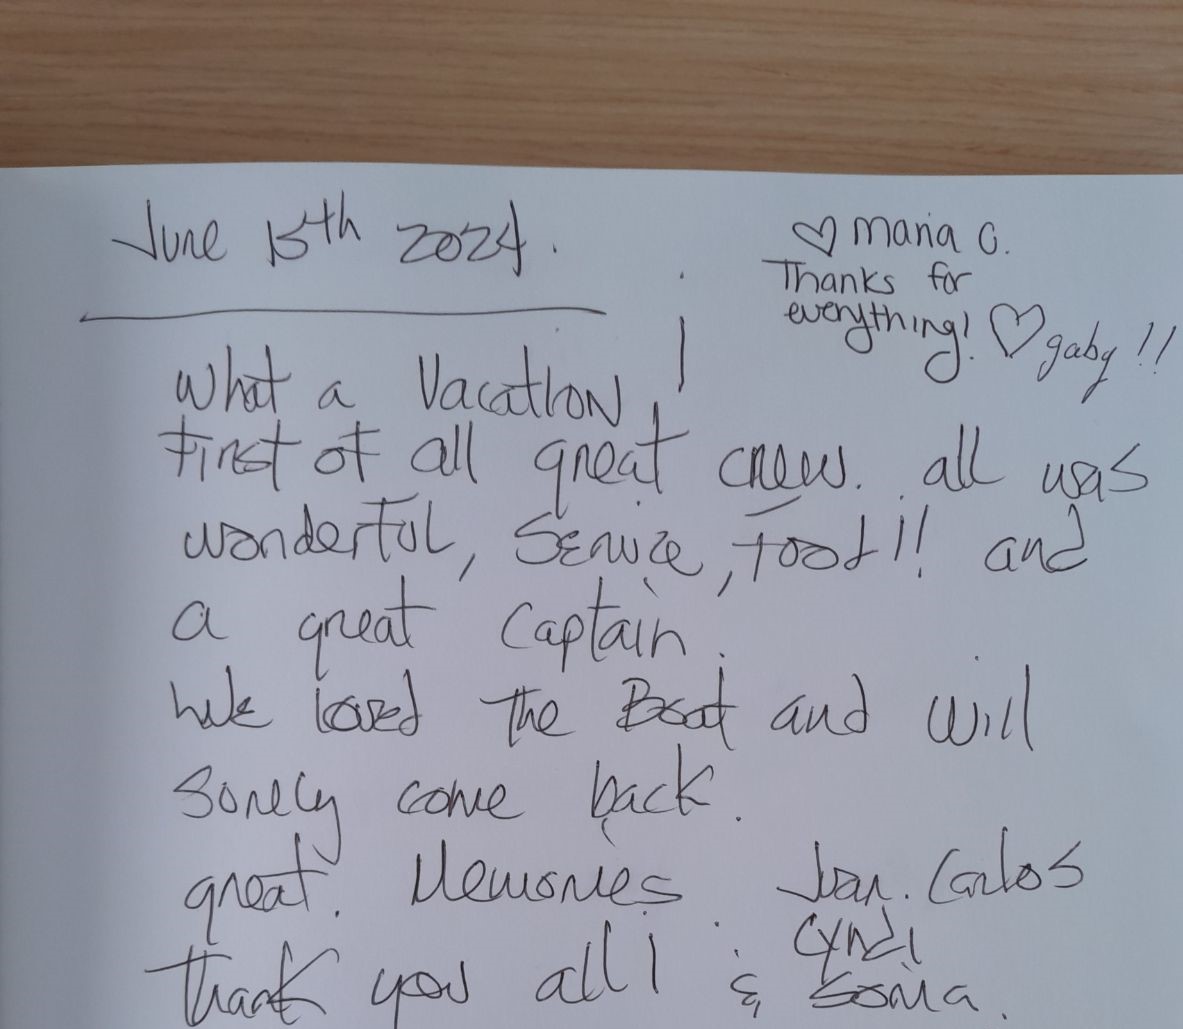 June 15th 2024.
♡ Maria C.
Thanks for
everything! ♡ gaby !!
What a Vacation!
First of all great crew. all was
wonderful, Service, Food!! and
a great Captain.
We loved the Boat and will
Surely come back.
great Memories. Juan. Carlos
Cyndi
Thank you all! & Sonia.